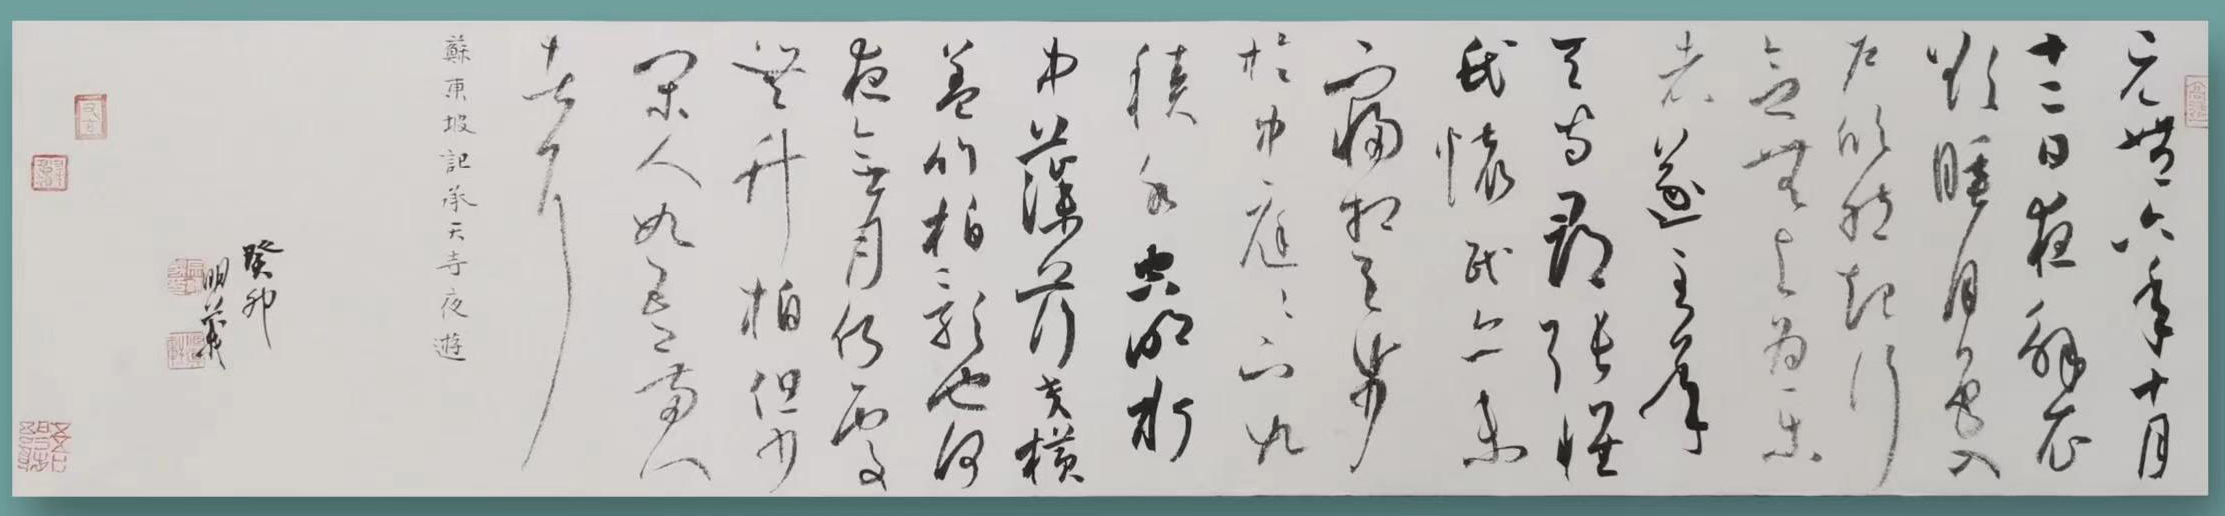 元豐六年十月
十二日夜解衣
欲睡月色入
戶欣然起行
念無與為樂
者遂至承
天寺尋張懷
民懷民亦未
寢相與步
於中庭〻下如
積水空明水
中藻荇交橫
蓋竹柏影也何
夜無月何處
無竹柏但少
閑人如吾兩人
者耳
蘇東坡記承天寺夜遊
癸卯
明義